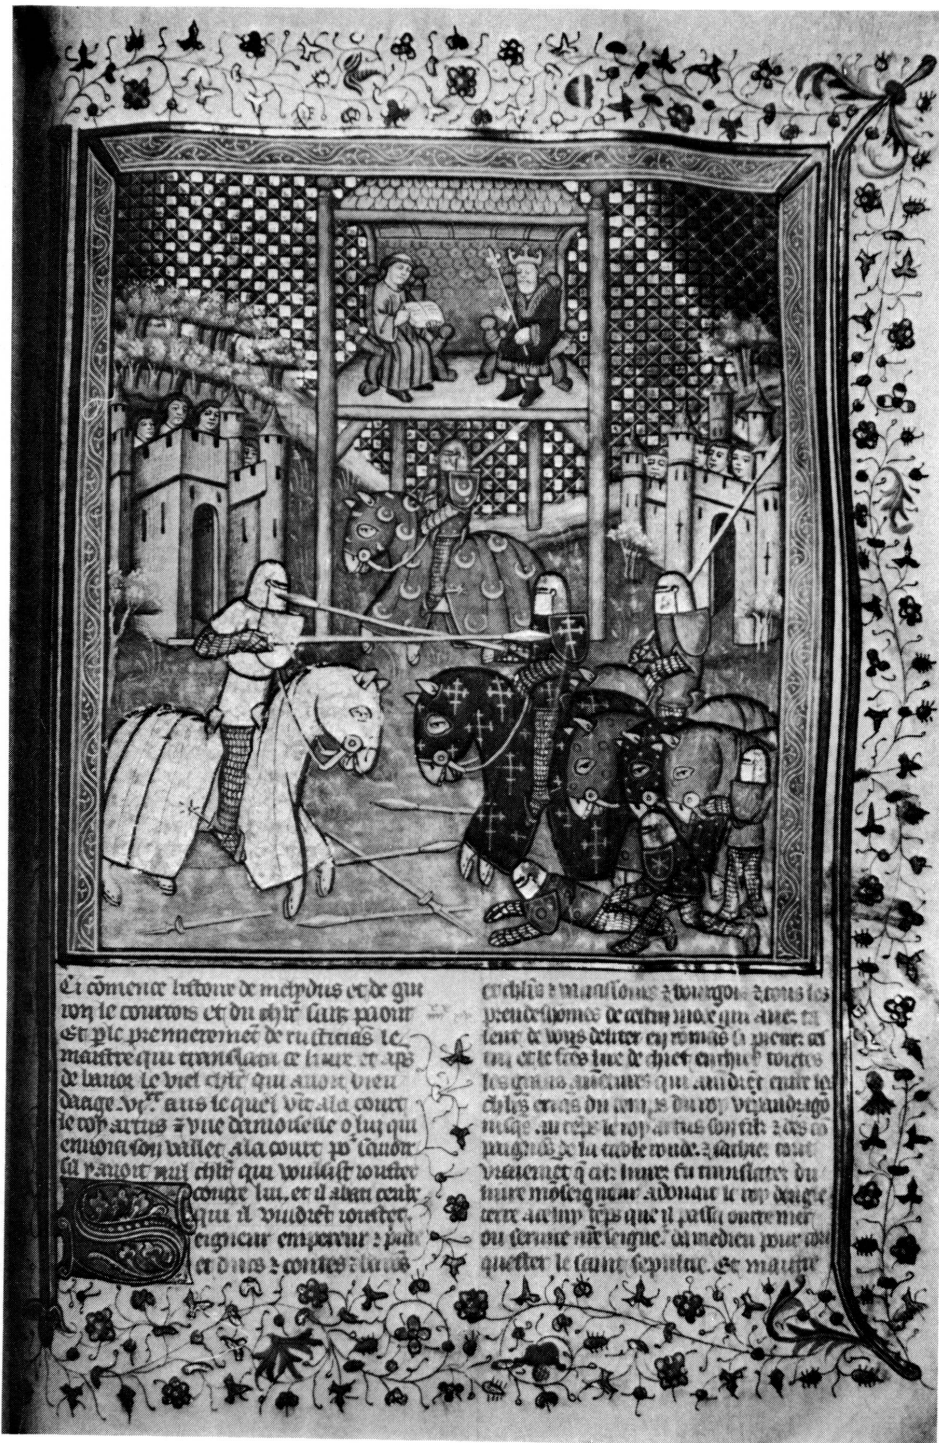 Ci cōmence listoire de meliadus et de gui
ron le courtois et du chlr̄ sans paour
Et p̄le premierement de rusticiās le
maistre qui translata ce liure et ap̄s
de branor le viel chlr̄ qui auoit bien
daage .vi.xx ans lequel vīt ala court
le roy artus
enuoia son vallet ala court po' sauoir
sil y auoit nul chlr̄ qui voulsist iouster
contre lui. et il abati ceulz
qui il vindrēt iouster
Seigneur empereur ⁊ prīce
et ducs ⁊ contes ⁊ barōs
et chlr̄s ⁊ vauassours ⁊ bourgois ⁊ tous les
preudeshomes de cestui mōde qui auez ta
lent de vo9 deliter en rōmās si prenez ces
tui et le fctēs lire de chief en chief
les grans auētures qui auīdrēt entre les
chlr̄s errās du temps du roy vterpandragō
iusqs au tēps le roy artus son filz ⁊ des cō
paignōs de la table ronde. ⁊ sachiez tout
vraiement q̄ cist liure fu translatez du
liure mōseigneur adouart le roy dengle
terre a celluy tēps que il passa oultre mer
ou seruice nr̄e seigneur damedieu pour con
quester le saint sepulcre. Et maistre